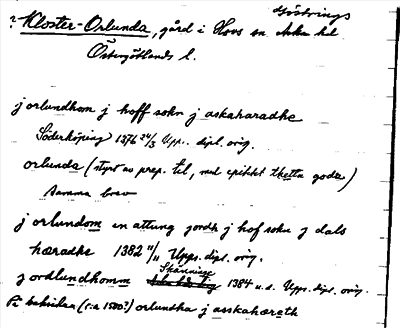 Göstrings
? Kloster-Orlunda, gård i Hovs sn Aska hd.
Östergötlands l.
j orlundhom j hoff sokn j askaharadhe
Söderköping 1376 24/3 Upps. dipl. orig.
orlunda (styrt av prep. til, med epitet thetta godz)
samma brev
j orlundom en attung jordh j hof sokn j dals
hæradhe 1382 11/11 Upps. dipl. orig.
j ordlundhomm Skänninge 1384 u.d. Upps. dipl. orig.
På baksidan (c:a 1500?) orlundha j asskahæreth